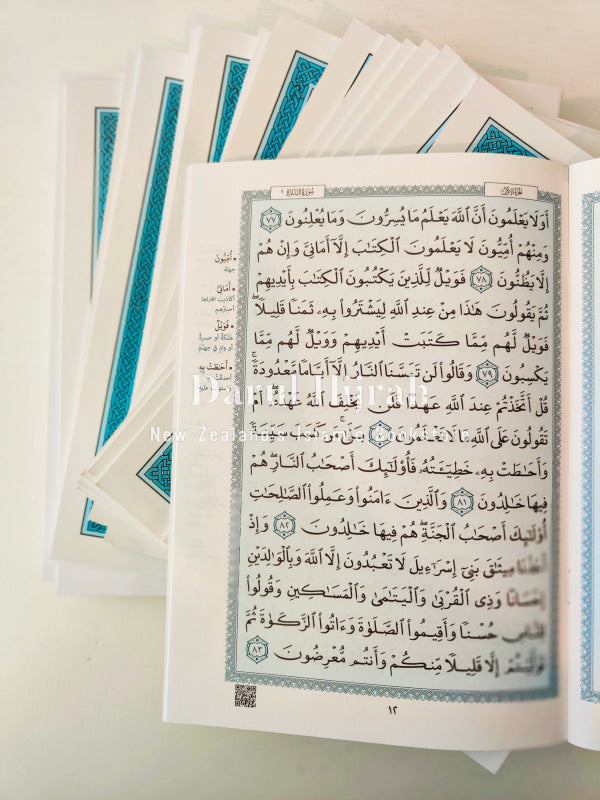 سُورَةُ البَقَرَةِ ٢
الجُزْءُ الأَوَّلُ
أَوَلَا يَعْلَمُونَ أَنَّ ٱللَّهَ يَعْلَمُ مَا يُسِرُّونَ وَمَا يُعْلِنُونَ ٧٧
وَمِنْهُمْ أُمِّيُّونَ لَا يَعْلَمُونَ ٱلْكِتَٰبَ إِلَّآ أَمَانِىَّ وَإِنْ هُمْ
إِلَّا يَظُنُّونَ ٧٨ فَوَيْلٌ لِّلَّذِينَ يَكْتُبُونَ ٱلْكِتَٰبَ بِأَيْدِيهِمْ
ثُمَّ يَقُولُونَ هَٰذَا مِنْ عِندِ ٱللَّهِ لِيَشْتَرُوا۟ بِهِۦ ثَمَنًا قَلِيلًا ۖ
فَوَيْلٌ لَّهُم مِّمَّا كَتَبَتْ أَيْدِيهِمْ وَوَيْلٌ لَّهُم مِّمَّا
يَكْسِبُونَ ٧٩ وَقَالُوا۟ لَن تَمَسَّنَا ٱلنَّارُ إِلَّآ أَيَّامًا مَّعْدُودَةً ۚ
قُلْ أَتَّخَذْتُمْ عِندَ ٱللَّهِ عَهْدًا فَلَن يُخْلِفَ ٱللَّهُ عَهْدَهُۥٓ ۖ أَمْ
تَقُولُونَ عَلَى ٱللَّهِ مَا لَا تَعْلَمُونَ ٨٠ بَلَىٰ مَن كَسَبَ سَيِّئَةً
وَأَحَٰطَتْ بِهِۦ خَطِيٓـَٔتُهُۥ فَأُو۟لَٰٓئِكَ أَصْحَٰبُ ٱلنَّارِ ۖ هُمْ
فِيهَا خَٰلِدُونَ ٨١ وَٱلَّذِينَ ءَامَنُوا۟ وَعَمِلُوا۟ ٱلصَّٰلِحَٰتِ
أُو۟لَٰٓئِكَ أَصْحَٰبُ ٱلْجَنَّةِ ۖ هُمْ فِيهَا خَٰلِدُونَ ٨٢ وَإِذْ
أَخَذْنَا مِيثَٰقَ بَنِىٓ إِسْرَٰٓءِيلَ لَا تَعْبُدُونَ إِلَّا ٱللَّهَ وَبِٱلْوَٰلِدَيْنِ
إِحْسَانًا وَذِى ٱلْقُرْبَىٰ وَٱلْيَتَٰمَىٰ وَٱلْمَسَٰكِينِ وَقُولُوا۟
لِلنَّاسِ حُسْنًا وَأَقِيمُوا۟ ٱلصَّلَوٰةَ وَءَاتُوا۟ ٱلزَّكَوٰةَ ثُمَّ
تَوَلَّيْتُمْ إِلَّا قَلِيلًا مِّنكُمْ وَأَنتُم مُّعْرِضُونَ ٨٣
• أُمِّيُّونَ
جهلة
• أَمَانِيَّ
أكاذيب افتراها
أحبارهم
• فَوَيْلٌ
هَلَكَةٌ أو حسرةٌ
أو وادٍ في جهنّم
• أَحَاطَتْ بِهِ
أحدقتْ به
عليه
١٢
Darul Hijrah
New Zealand's Islamic Bookstore